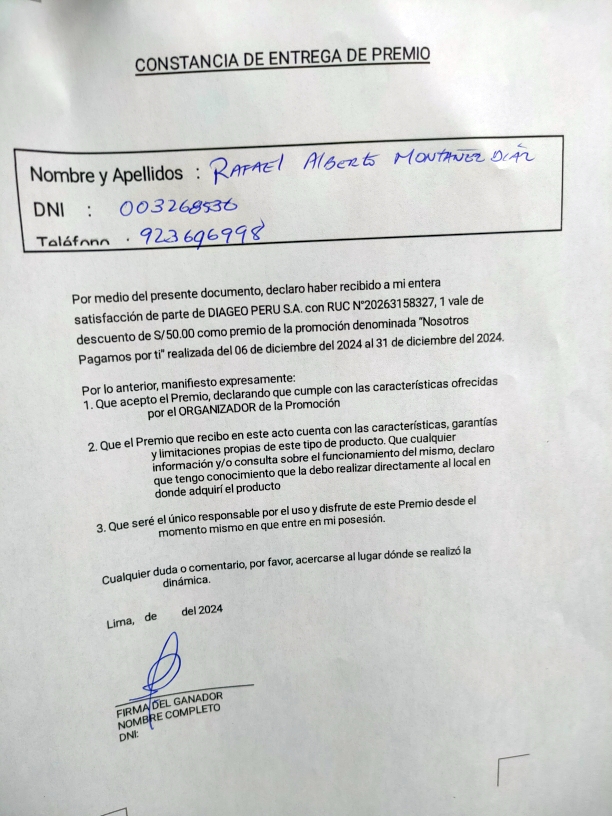 CONSTANCIA DE ENTREGA DE PREMIO
Nombre y Apellidos : RAFAEL ALBERTO MONTAÑEZ DÍAZ
DNI : 003268536
Teléfono : 923696998
Por medio del presente documento, declaro haber recibido a mi entera
satisfacción de parte de DIAGEO PERU S.A. con RUC N°20263158327, 1 vale de
descuento de S/50.00 como premio de la promoción denominada "Nosotros
Pagamos por ti" realizada del 06 de diciembre del 2024 al 31 de diciembre del 2024.
Por lo anterior, manifiesto expresamente:
1. Que acepto el Premio, declarando que cumple con las características ofrecidas
por el ORGANIZADOR de la Promoción
2. Que el Premio que recibo en este acto cuenta con las características, garantías
y limitaciones propias de este tipo de producto. Que cualquier
información y/o consulta sobre el funcionamiento del mismo, declaro
que tengo conocimiento que la debo realizar directamente al local en
donde adquirí el producto
3. Que seré el único responsable por el uso y disfrute de este Premio desde el
momento mismo en que entre en mi posesión.
Cualquier duda o comentario, por favor, acercarse al lugar dónde se realizó la
dinámica.
Lima, de del 2024
FIRMA DEL GANADOR
NOMBRE COMPLETO
DNI: